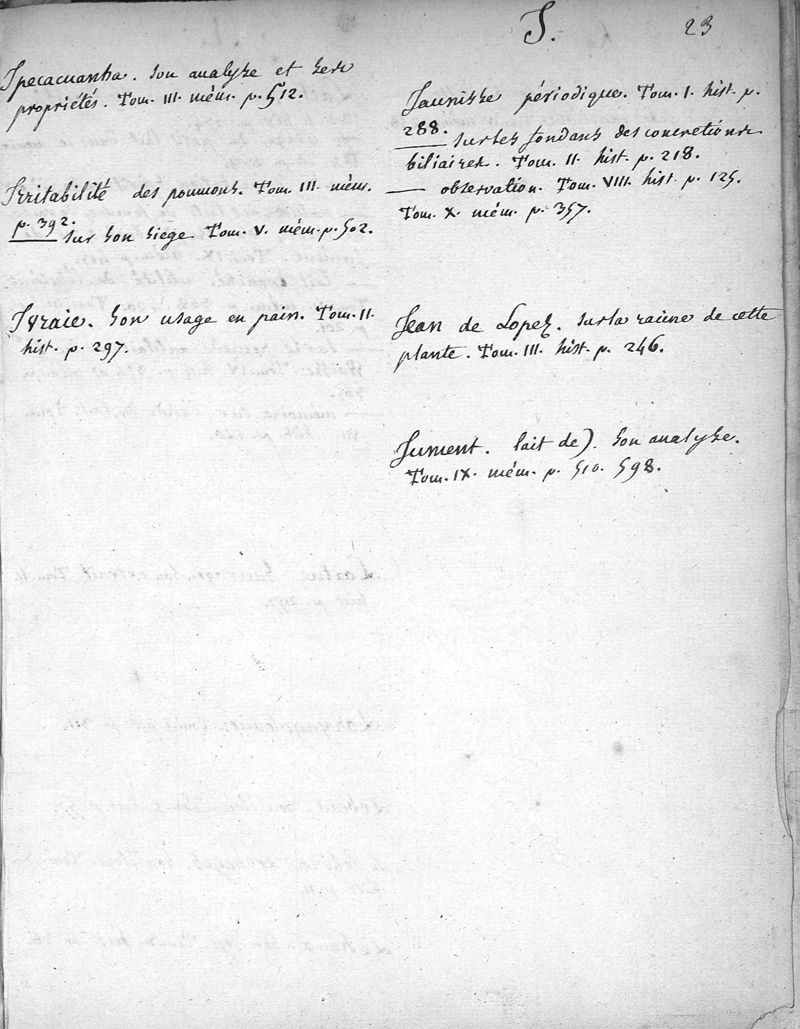 J.
23
Ipecacuanha. son analyse et ses
propriétés. Tom. III. mém. p. 512.
Irritabilité des poumons. Tom. III. mém.
p. 392.
—— sur son siege Tom. V. mém. p. 502.
Ivraie. son usage en pain. Tom. II.
hist. p. 297.
Jaunisse périodique. Tom. I. hist. p.
288.
—— sur les fondans des concretions
biliaires. Tom. II hist. p. 218.
—— observation. Tom. VIII. hist. p. 125.
Tom. X. mém. p. 357.
Jean de Lopez. sur la racine de cette
plante. Tom. III. hist. p. 246.
Jument. lait de) son analyse.
Tom. IX. mém. p. 510. 598.